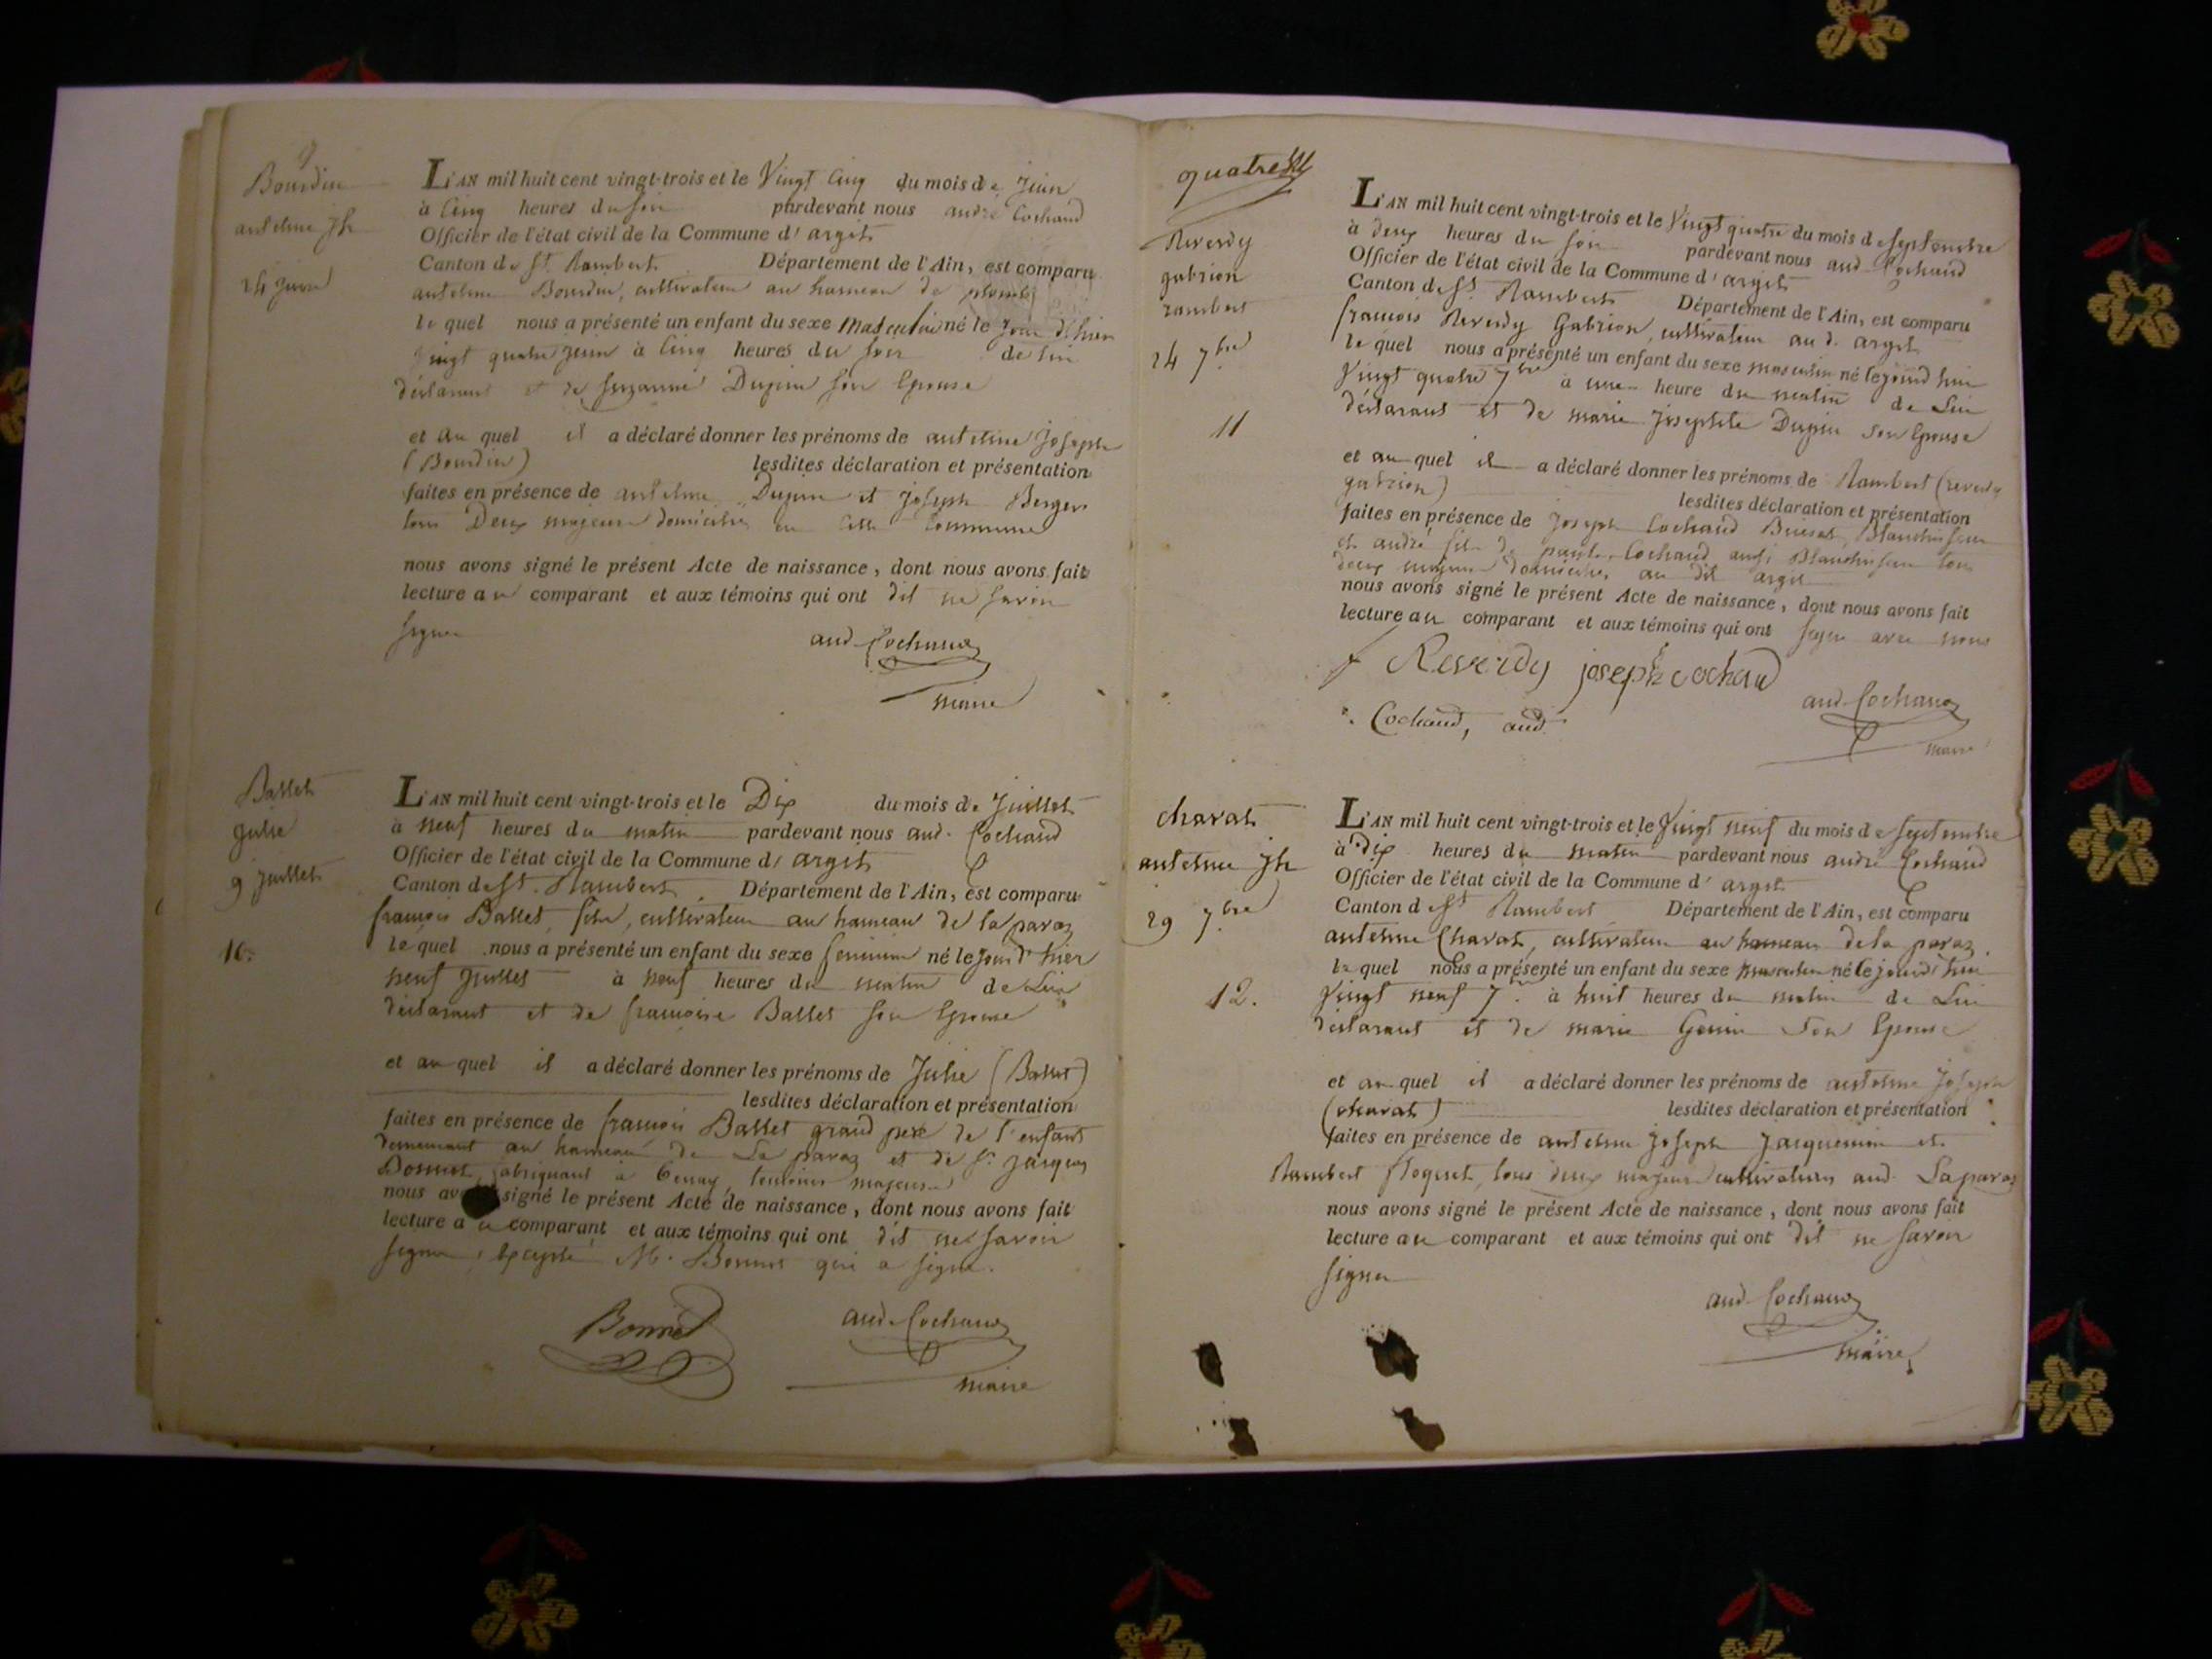 9
Bourdin
antelme jh
24 juin
L'AN mil huit cent vingt-trois et le Vingt Cinq du mois de Juin
à Cinq heures du soir pardevant nous andré Cochaud
Officier de l'état civil de la Commune d'argit
Canton de St. Rambert Département de l'Ain, est comparu
antelme Bourdin, cultivateur au hameau de
le quel nous a présenté un enfant du sexe Masculin né le Jour d'hier
Vingt quatre juin à Cinq heures du soir de lui
déclarant et de Suzanne Dupin son Epouse
et au quel il a déclaré donner les prénoms de antelme Joseph
(Bourdin) lesdites déclaration et présentation
faites en présence de antelme Dupin et joseph Berger
tous Deux majeurs domiciliés en cette Commune
nous avons signé le présent Acte de naissance, dont nous avons fait
lecture au comparant et aux témoins qui ont dit ne savoir
signer
and Cochaud
maire
Ballet
Julie
9 juillet
10.
L'AN mil huit cent vingt-trois et le Dix du mois de Juillet
à neuf heures du matin pardevant nous and. Cochaud
Officier de l'état civil de la Commune d'argit
Canton de St. Rambert Département de l'Ain, est comparu
françois Ballet, fils, cultivateur au hameau de la paraz
le quel nous a présenté un enfant du sexe feminin né le Jour d'hier
neuf Juillet à neuf heures du matin de Lui
déclarant et de françoise Ballet son Epouse
et au quel il a déclaré donner les prénoms de Julie (Ballet)
lesdites déclaration et présentation
faites en présence de françois Ballet grand pere de l'enfant
demeurant au hameau de La paraz et de Sr. jacques
Bonnet, fabriquant à Tenay, majeurs
nous av signé le présent Acte de naissance, dont nous avons fait
lecture au comparant et aux témoins qui ont dit ne savoir
signer, Excepté Mr. Bonnet qui a signé.
Bonnet
and Cochaud
maire
quatre
Reverdy
gabrion
rambert
24 7bre
11
L'AN mil huit cent vingt-trois et le Vingt quatre du mois de septembre
à deux heures du soir pardevant nous and Cochaud
Officier de l'état civil de la Commune d'argit
Canton de St. Rambert Département de l'Ain, est comparu
francois Reverdy Gabrion, cultivateur au d. argit
le quel nous a présenté un enfant du sexe masculin né le jourd'hui
Vingt quatre 7bre à une heure du matin de Lui
déclarant et de marie Josephte Dupin son Epouse
et au quel il a déclaré donner les prénoms de Rambert (reverdy
gabrion) lesdites déclaration et présentation
faites en présence de Joseph Cochaud Blanchisseur
et andré fils de Cochaud aussi Blanchisseur tous
deux majeurs domiciliés au dit argit
nous avons signé le présent Acte de naissance, dont nous avons fait
lecture au comparant et aux témoins qui ont signé avec nous
f Reverdy joseph cochaud
and Cochaud
Cochaud, and.
maire
charat
antelme jh
29 7bre
12.
L'AN mil huit cent vingt-trois et le Vingt neuf du mois de septembre
à dix heures du matin pardevant nous andré Cochaud
Officier de l'état civil de la Commune d'argit
Canton de St Rambert Département de l'Ain, est comparu
antelme Charat, cultivateur au hameau de la paraz
le quel nous a présenté un enfant du sexe masculin né le jourd'hui
Vingt neuf 7bre à huit heures du matin de Lui
déclarant et de marie Genin son Epouse
et au quel il a déclaré donner les prénoms de antelme Joseph
(charat) lesdites déclaration et présentation
faites en présence de antelme joseph Jacquemin et
Rambert tous deux majeurs cultivateurs aud. Laparaz
nous avons signé le présent Acte de naissance, dont nous avons fait
lecture au comparant et aux témoins qui ont dit ne savoir
signer
and Cochaud
maire